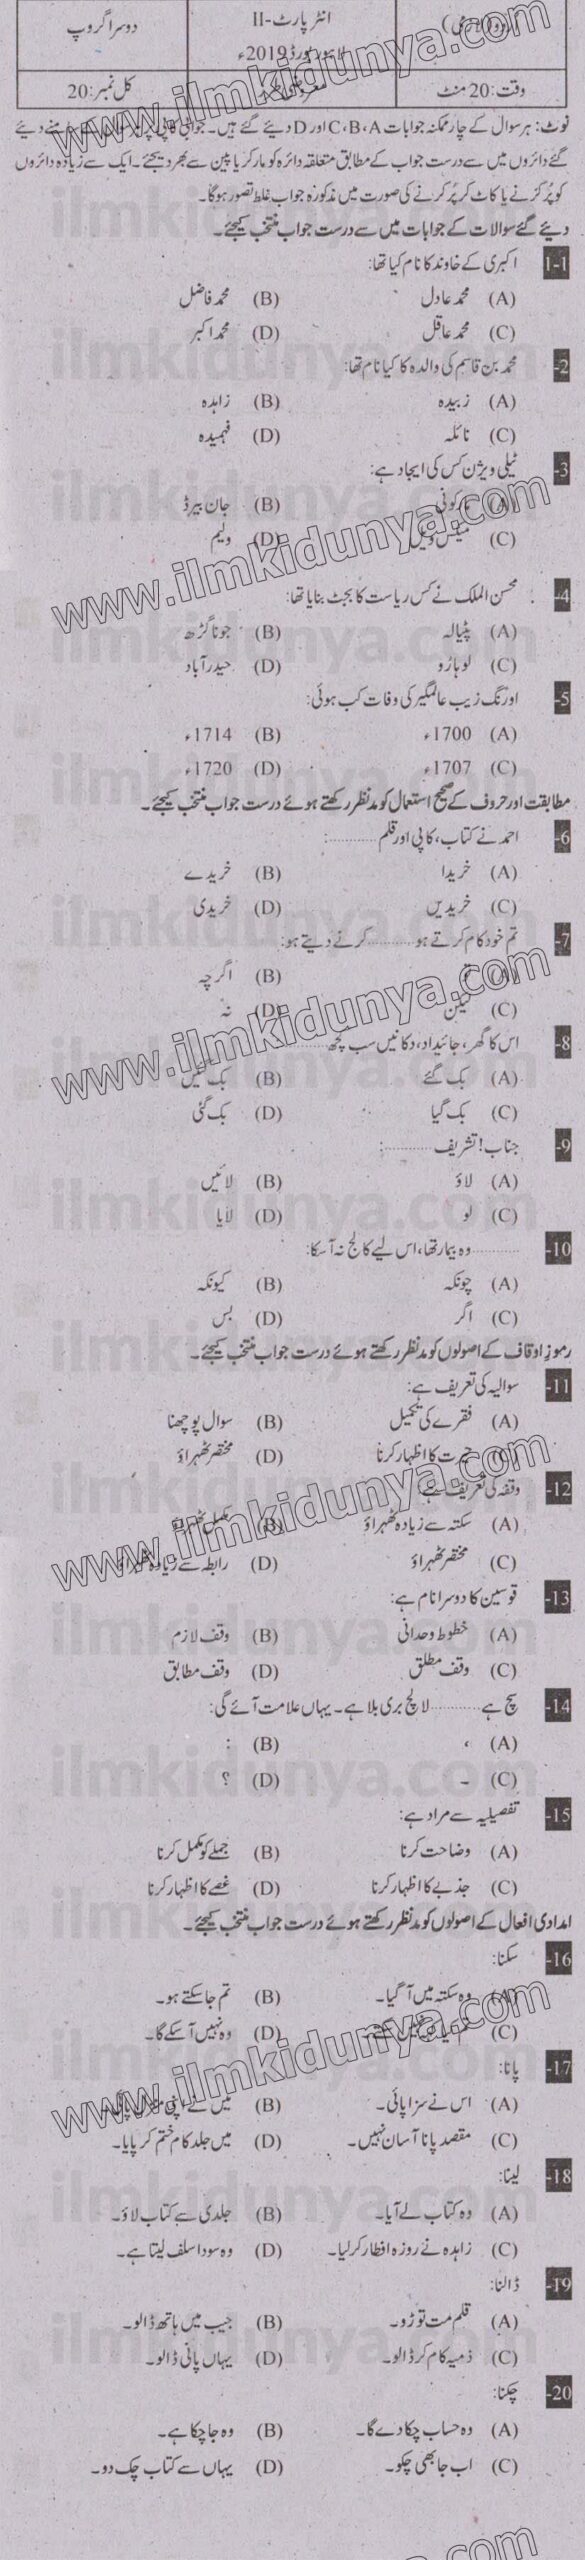 (نو لازمی) انٹر پارٹ-II دوسرا گروپ
لاہور بورڈ 2019ء
وقت: 20 منٹ معروضی کل نمبر: 20
نوٹ: ہر سوال کے چار ممکنہ جوابات C، B، A اور D دیئے گئے ہیں۔ جوابی کاپی پر سامنے دیئے
گئے دائروں میں سے درست جواب کے مطابق متعلقہ دائرہ کو مارکر یا پین سے بھر دیجئے۔ ایک سے زیادہ دائروں
کو پُر کرنے یا کاٹ کر پُر کرنے کی صورت میں مذکورہ جواب غلط تصور ہوگا۔
دیئے گئے سوالات کے جوابات میں سے درست جواب منتخب کیجئے۔
1-1 اکبری کے خاوند کا نام کیا تھا:
(A) محمد عادل (B) محمد فاضل
(C) محمد عاقل (D) محمد اکبر
-2 محمد بن قاسم کی والدہ کا کیا نام تھا:
(A) زبیدہ (B) زاہدہ
(C) نائلہ (D) فہمیدہ
-3 ٹیلی ویژن کس کی ایجاد ہے:
(A) مارکونی (B) جان بیرڈ
(C) میکس ویل (D) ولیم
-4 محسن الملک نے کس ریاست کا بجٹ بنایا تھا:
(A) پٹیالہ (B) جونا گڑھ
(C) لوہارو (D) حیدرآباد
-5 اورنگ زیب عالمگیر کی وفات کب ہوئی:
(A) 1700ء (B) 1714ء
(C) 1707ء (D) 1720ء
مطابقت اور حروف کے صحیح استعمال کو مدنظر رکھتے ہوئے درست جواب منتخب کیجئے۔
-6 احمد نے کتاب، کاپی اور قلم ...........:
(A) خریدا (B) خریدے
(C) خریدیں (D) خریدی
-7 تم خود کام کرتے ہو ........... کرنے دیتے ہو:
(A) تو (B) اگرچہ
(C) لیکن (D) نہ
-8 اس کا گھر، جائیداد، دکانیں سب کچھ ...........
(A) بک گئے (B) بک گئیں
(C) بک گیا (D) بک گئی
-9 جناب! تشریف ...........:
(A) لاؤ (B) لائیں
(C) لو (D) لایا
-10 ........... وہ بیمار تھا، اس لیے کالج نہ آسکا:
(A) چونکہ (B) کیونکہ
(C) اگر (D) بس
رموزِ اوقاف کے اصولوں کو مدنظر رکھتے ہوئے درست جواب منتخب کیجئے۔
-11 سوالیہ کی تعریف ہے:
(A) فقرے کی تکمیل (B) سوال پوچھنا
(C) حیرت کا اظہار کرنا (D) مختصر ٹھہراؤ
-12 وقفہ کی تعریف ہے:
(A) سکتہ سے زیادہ ٹھہراؤ (B) مکمل ٹھہراؤ
(C) مختصر ٹھہراؤ (D) رابطہ سے زیادہ ٹھہراؤ
-13 قوسین کا دوسرا نام ہے:
(A) خطوط وحدانی (B) وقف لازم
(C) وقف مطلق (D) وقف مطابق
-14 سچ ہے ........... لالچ بری بلا ہے۔ یہاں علامت آئے گی:
(A) ، (B) :
(C) ۔ (D) ؟
-15 تفصیلیہ سے مراد ہے:
(A) وضاحت کرنا (B) جملے کو مکمل کرنا
(C) جذبے کا اظہار کرنا (D) غصے کا اظہار کرنا
امدادی افعال کے اصولوں کو مدنظر رکھتے ہوئے درست جواب منتخب کیجئے۔
-16 سکنا:
(A) وہ سکتہ میں آ گیا۔ (B) تم جا سکتے ہو۔
(C) (D) وہ نہیں آ سکے گا۔
-17 پانا:
(A) اس نے سزا پائی۔ (B) میں نے اپنی
(C) مقصد پانا آسان نہیں۔ (D) میں جلد کام ختم کر پایا۔
-18 لینا:
(A) وہ کتاب لے آیا۔ (B) جلدی سے کتاب لاؤ۔
(C) زاہدہ نے روزہ افطار کر لیا۔ (D) وہ سودا سلف لیتا ہے۔
-19 ڈالنا:
(A) قلم مت توڑو۔ (B) جیب میں ہاتھ ڈالو۔
(C) ذمیہ کام کر ڈالو۔ (D) یہاں پانی ڈالو۔
-20 چکنا:
(A) وہ حساب چکا دے گا۔ (B) وہ جا چکا ہے۔
(C) اب جا بھی چکو۔ (D) یہاں سے کتاب چک دو۔
www.ilmkidunya.com